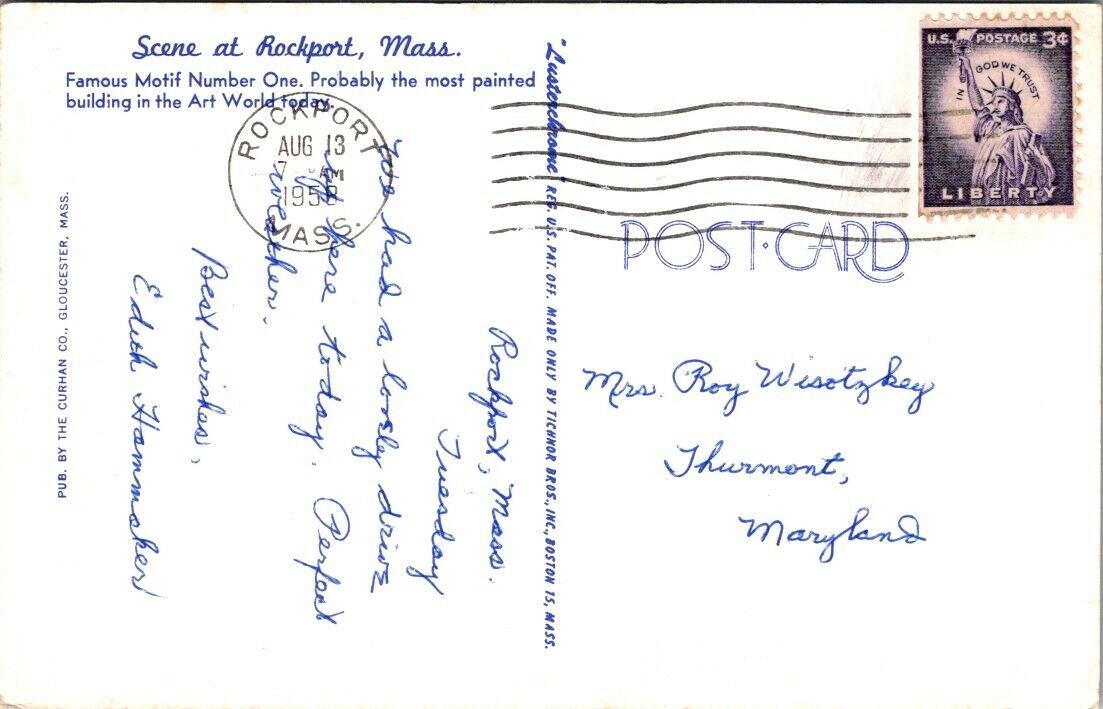 Scene at Rockport, Mass.
Famous Motif Number One. Probably the most painted
building in the Art World today.
PUB. BY THE CURHAN CO., GLOUCESTER, MASS.
"Lusterchrome" REG. U.S. PAT. OFF. MADE ONLY BY TICHNOR BROS., INC., BOSTON 15, MASS.
ROCKPORT
AUG 13
7 AM
1958
MASS.
U.S. POSTAGE 3¢
IN GOD WE TRUST
LIBERTY
POST CARD
Rockport, Mass.
Tuesday
We had a lovely drive
up here today. Perfect
weather.
Best wishes,
Edith Hammaker
Mrs. Roy Wisotzkey
Thurmont,
Maryland